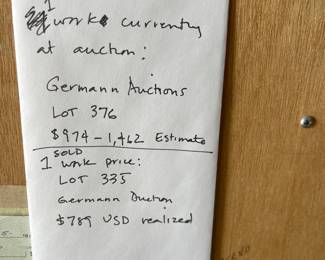 1
work currently
at auction:
Germann Auctions
LOT 376
$974 - 1,462 Estimate
SOLD
1 work price:
LOT 335
Germann Auction
$789 USD realized